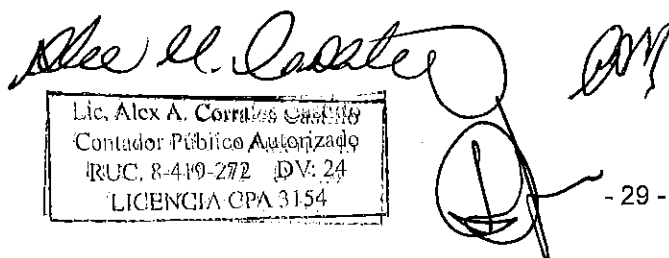 Lic. Alex A. Corrales Castillo
Contador Público Autorizado
RUC. 8-419-272 DV: 24
LICENCIA CPA 3154
- 29 -